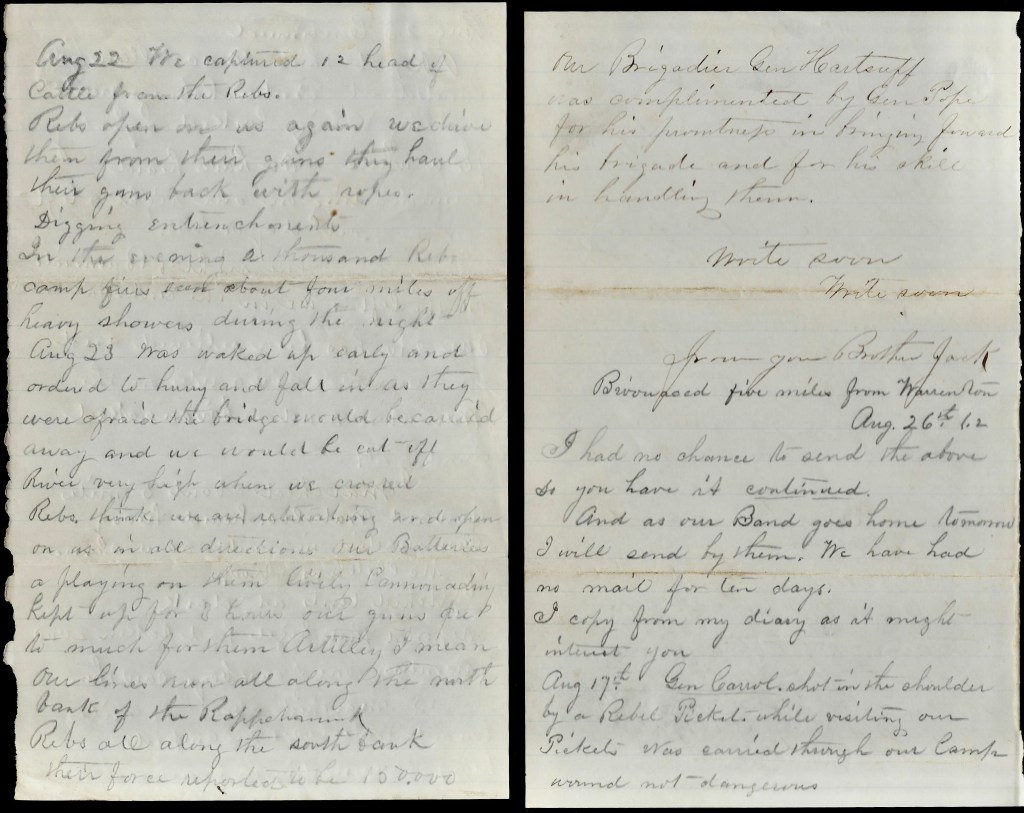 Aug 22 We captured 12 head of
Cattle from the Rebs.
Rebs open on us again we drive
them from their guns they haul
their guns back with ropes.
Digging entrenchments
In the evening a thousand Reb
camp fires seen about four miles off
heavy showers during the night
Aug 23 Was waked up early and
ordered to hurry and fall in as they
were afraid the bridge would be carried
away and we would be cut off
River very high when we crossed
Rebs. think we are retreating and open
on us in all directions our Batteries
a playing on them lively Cannonading
kept up for 3 hours our guns
to much for them Artilley I mean
Our lines now all along the north
bank of the Rappahannock
Rebs all along the south bank
their force reported to be 150.000
Our Brigadier Gen Hartsuff
was complimented by Gen Pope
for his promtness in bringing forward
his brigade and for his skill
in handling them.
Write soon
Write soon
from your Brother Jack
Bivouaced five miles from Warrenton
Aug. 26th 62
I had no chance to send the above
so you have it continued.
And as our Band goes home tomorrow
I will send by them. We have had
no mail for ten days.
I copy from my diary as it might
interest you
Aug 17th Gen Carrol. shot in the shoulder
by a Rebel Pickets while visiting our
Pickets was carried through our Camp
wound not dangerous